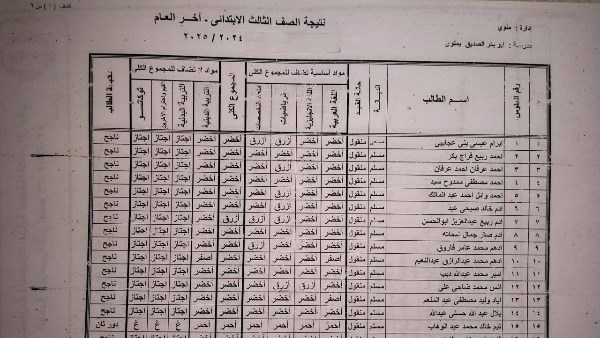 كشف (١) ص ١
نتيجة الصف الثالث الابتدائى - أخر العام
٢٠٢٤ / ٢٠٢٥
إدارة : ملوي
مدرسة : أبو بكر الصديق بملوى
رقم الجلوس اسم الطالب الديانة حالة القيد مواد أساسية تضاف للمجموع الكلى المجموع الكلى مواد لا تضاف للمجموع الكلى نتيجة الطالب
اللغة العربية اللغة الانجليزية الرياضيات متعدد التخصصات التربية الدينية التربية البدنية القيم واحترام الآخرين توكاتسو
١ ١ ابرام عيسى بنى عجايبى منقول أخضر أخضر أزرق أزرق أخضر أخضر اجتاز اجتاز اجتاز ناجح
٢ ٢ احمد ربيع فراج بكر مسلم منقول أخضر أخضر أخضر أخضر أخضر أخضر اجتاز اجتاز اجتاز ناجح
٣ ٣ احمد عرفان احمد عرفان مسلم منقول أخضر أخضر أزرق أخضر أخضر أخضر اجتاز اجتاز اجتاز ناجح
٤ ٤ احمد مصطفى ممدوح سيد مسلم منقول أخضر أخضر أخضر أخضر أخضر أخضر اجتاز اجتاز اجتاز ناجح
٥ ٥ احمد وائل احمد عبد المالك مسلم منقول أخضر أخضر أزرق أخضر أخضر اجتاز اجتاز اجتاز ناجح
٦ ٦ ادم خالد صبحى عيد مسلم منقول أخضر أخضر أخضر أخضر أخضر اجتاز اجتاز اجتاز ناجح
٧ ٧ ادم ربيع عبدالعزيز ابوالحسن مسلم منقول أخضر أخضر أزرق أزرق أخضر اجتاز اجتاز اجتاز ناجح
٨ ٨ ادم صابر جمال مسلم منقول أخضر أخضر أخضر أخضر أخضر اجتاز اجتاز اجتاز ناجح
٩ ٩ ادهم محمد عامر فاروق مسلم منقول أخضر أخضر أخضر أزرق أخضر أخضر اجتاز اجتاز اجتاز ناجح
١٠ ١٠ ادهم محمد عبدالرازق عبدالنعيم مسلم منقول أصفر أخضر أخضر أخضر أخضر أصفر اجتاز اجتاز اجتاز ناجح
١١ ١١ امير محمد عبدالله ديب مسلم منقول أخضر أخضر أخضر أخضر أخضر أخضر اجتاز اجتاز اجتاز ناجح
١٢ ١٢ انس محمد ضاحى على مسلم منقول أخضر أزرق أزرق أخضر أخضر أخضر اجتاز اجتاز اجتاز ناجح
١٣ ١٣ اياد وليد مصطفى عبد المنعم مسلم منقول أصفر أخضر أخضر أخضر أخضر أخضر اجتاز اجتاز اجتاز ناجح
١٤ ١٤ بلال عبد الله حسنى عبدالله مسلم منقول أخضر أخضر أخضر أخضر أخضر أخضر اجتاز اجتاز اجتاز ناجح
١٥ ١٥ تيم خالد محمد عبد الوهاب مسلم منقول أحمر أحمر أحمر أحمر أحمر أحمر غ غ غ دور ثان